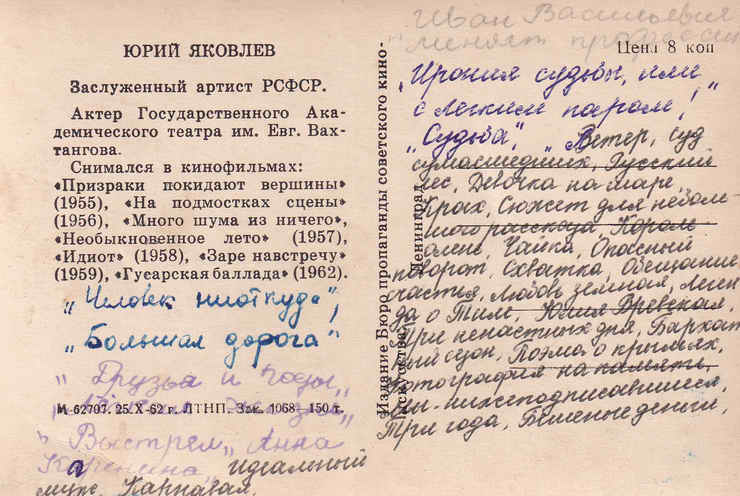 ЮРИЙ ЯКОВЛЕВ
Заслуженный артист РСФСР.
Актер Государственного Ака-
демического театра им. Евг. Вах-
тангова.
Снимался в кинофильмах:
«Призраки покидают вершины»
(1955), «На подмостках сцены»
(1956), «Много шума из ничего»,
«Необыкновенное лето» (1957),
«Идиот» (1958), «Заре навстречу»
(1959), «Гусарская баллада» (1962).
„Человек ниоткуда",
„Большая дорога"
„Друзья и годы",
М 62707. 25/X-62 г. ЛТНП. Зак. 1068—150 т.
„Выстрел", „Анна
Каренина", идеальный
муж, Карнавал,
Издание Бюро пропаганды советского кино-
искусства
Ленинград
Иван Васильевич
меняет профессию
Цена 8 коп
„Ирония судьбы, или
с легким паром!"
„Судьба", „Ветер, суд
сумасшедших, Русский
лес, Девочка на шаре,
Крах, Сюжет для неболь-
шого рассказа, Король-
олень, Чайка, Опасный
поворот, Схватка, Обещание
счастья, Любовь земная, Леген-
да о Тиле, Юлия Вревская,
Три ненастных дня, Бархат
ный сезон, Поэма о крыльях,
Фотография на память,
Мы-нижеподписавшиеся,
Три года, Бешеные деньги,